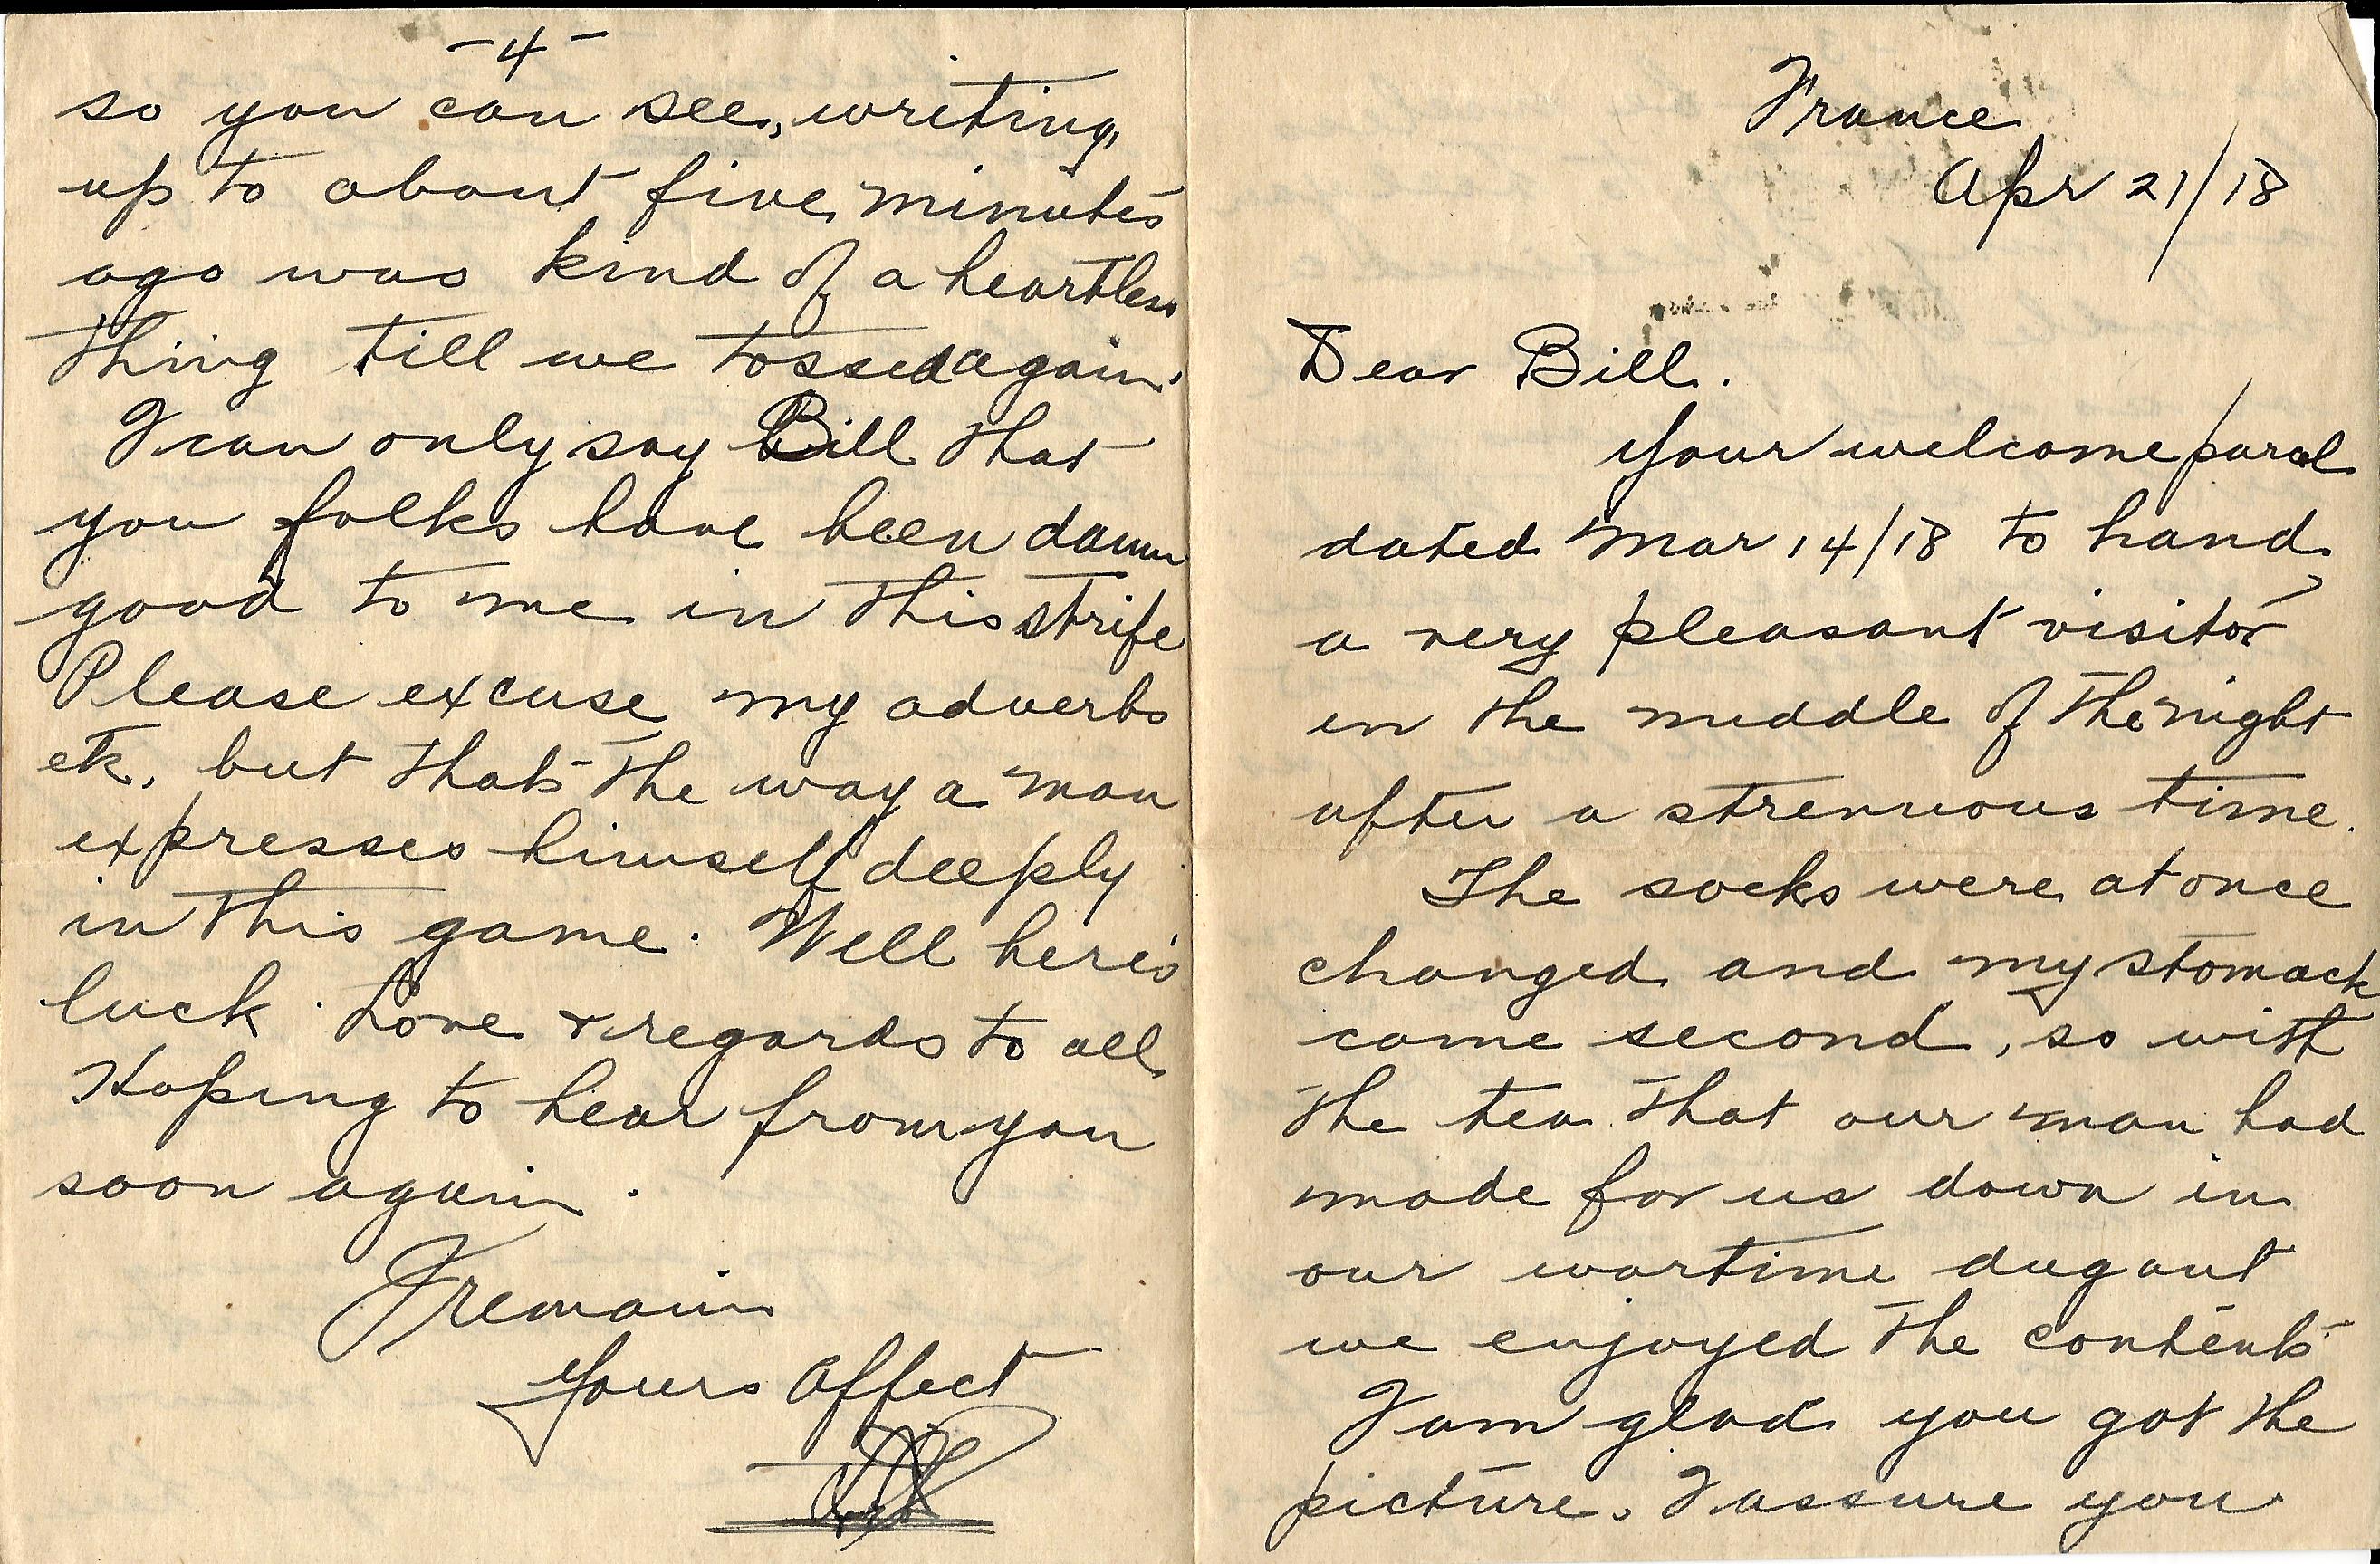 France
Apr 21/18
Dear Bill.
Your welcome parcel
dated Mar 14/18 to hand,
a very pleasant visitor
in the middle of the night
after a strenuous time.
The socks were at once
changed and my stomach
came second, so with
the tea that our man had
made for us down in
our wartime dugout
we enjoyed the contents
I am glad you got the
picture. I assure you
-4-
so you can see, writing,
up to about five minutes
ago was kind of a heartless
thing till we tossed again.
I can only say Bill that
you folks have been damn
good to me in this strife
Please excuse my adverbs
etc. but thats the way a man
expresses himself deeply
in this game. Well here's
luck. Love & regards to all
Hoping to hear from you
soon again.
I remain
Yours Affect